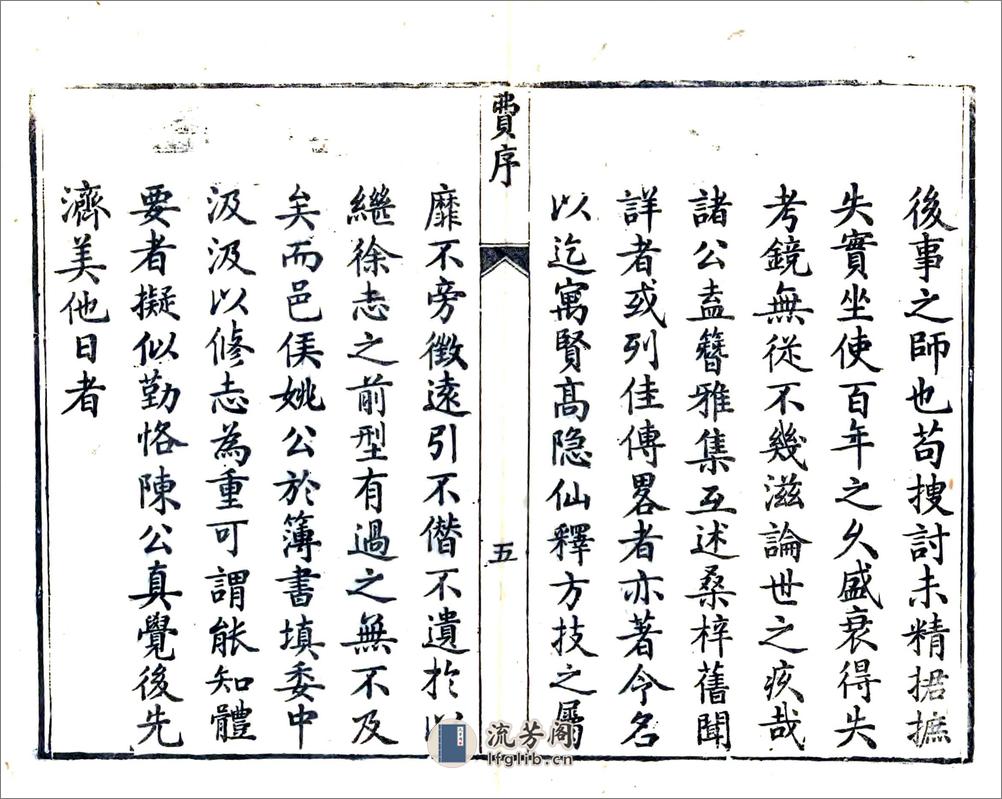 後事之師也苟搜討未精捃摭
失實坐使百年之久盛衰得失
考鏡無從不幾滋論世之疚哉
諸公盍簪雅集互述桑梓舊聞
詳者或列佳傳畧者亦著令名
以迄寓賢高隐仙釋方技之屬
費序
五
靡不旁徵遠引不僭不遺於以
繼徐志之前型有過之無不及
矣而邑侯姚公於簿書填委中
汲汲以修志為重可謂能知體
要者擬似勤恪陳公真覺後先
濟美他日者
流芳阁
lfglib.cn